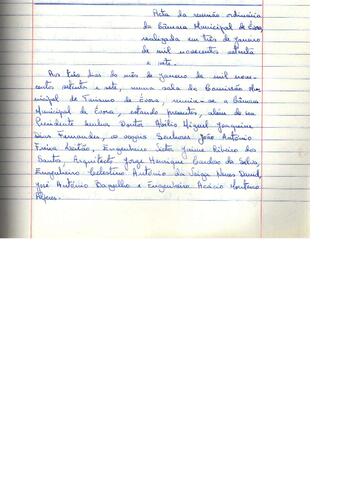 Acta da reunião ordinária
da Câmara Municipal de Évora
realizada em três de Janeiro
de mil novecentos setenta
e sete.
Aos três dias do mês de Janeiro de mil nove-
centos setenta e sete, numa sala da Comissão Mu-
nicipal de Turismo de Évora, reuniu-se a Câmara
Municipal de Évora, estando presentes, além do seu
Presidente Senhor Doutor Abílio Miguel Joaquim
Dias Fernandes, os vogais Senhores João António
Freixa Leitão, Engenheiro Victor Jaime Ribeiro dos
Santos, Arquitecto Jorge Henrique Cardoso da Silva,
Engenheiro Celestino António da Veiga Neves David,
José António Bagulho e Engenheiro Acácio Monteiro
Alferes.